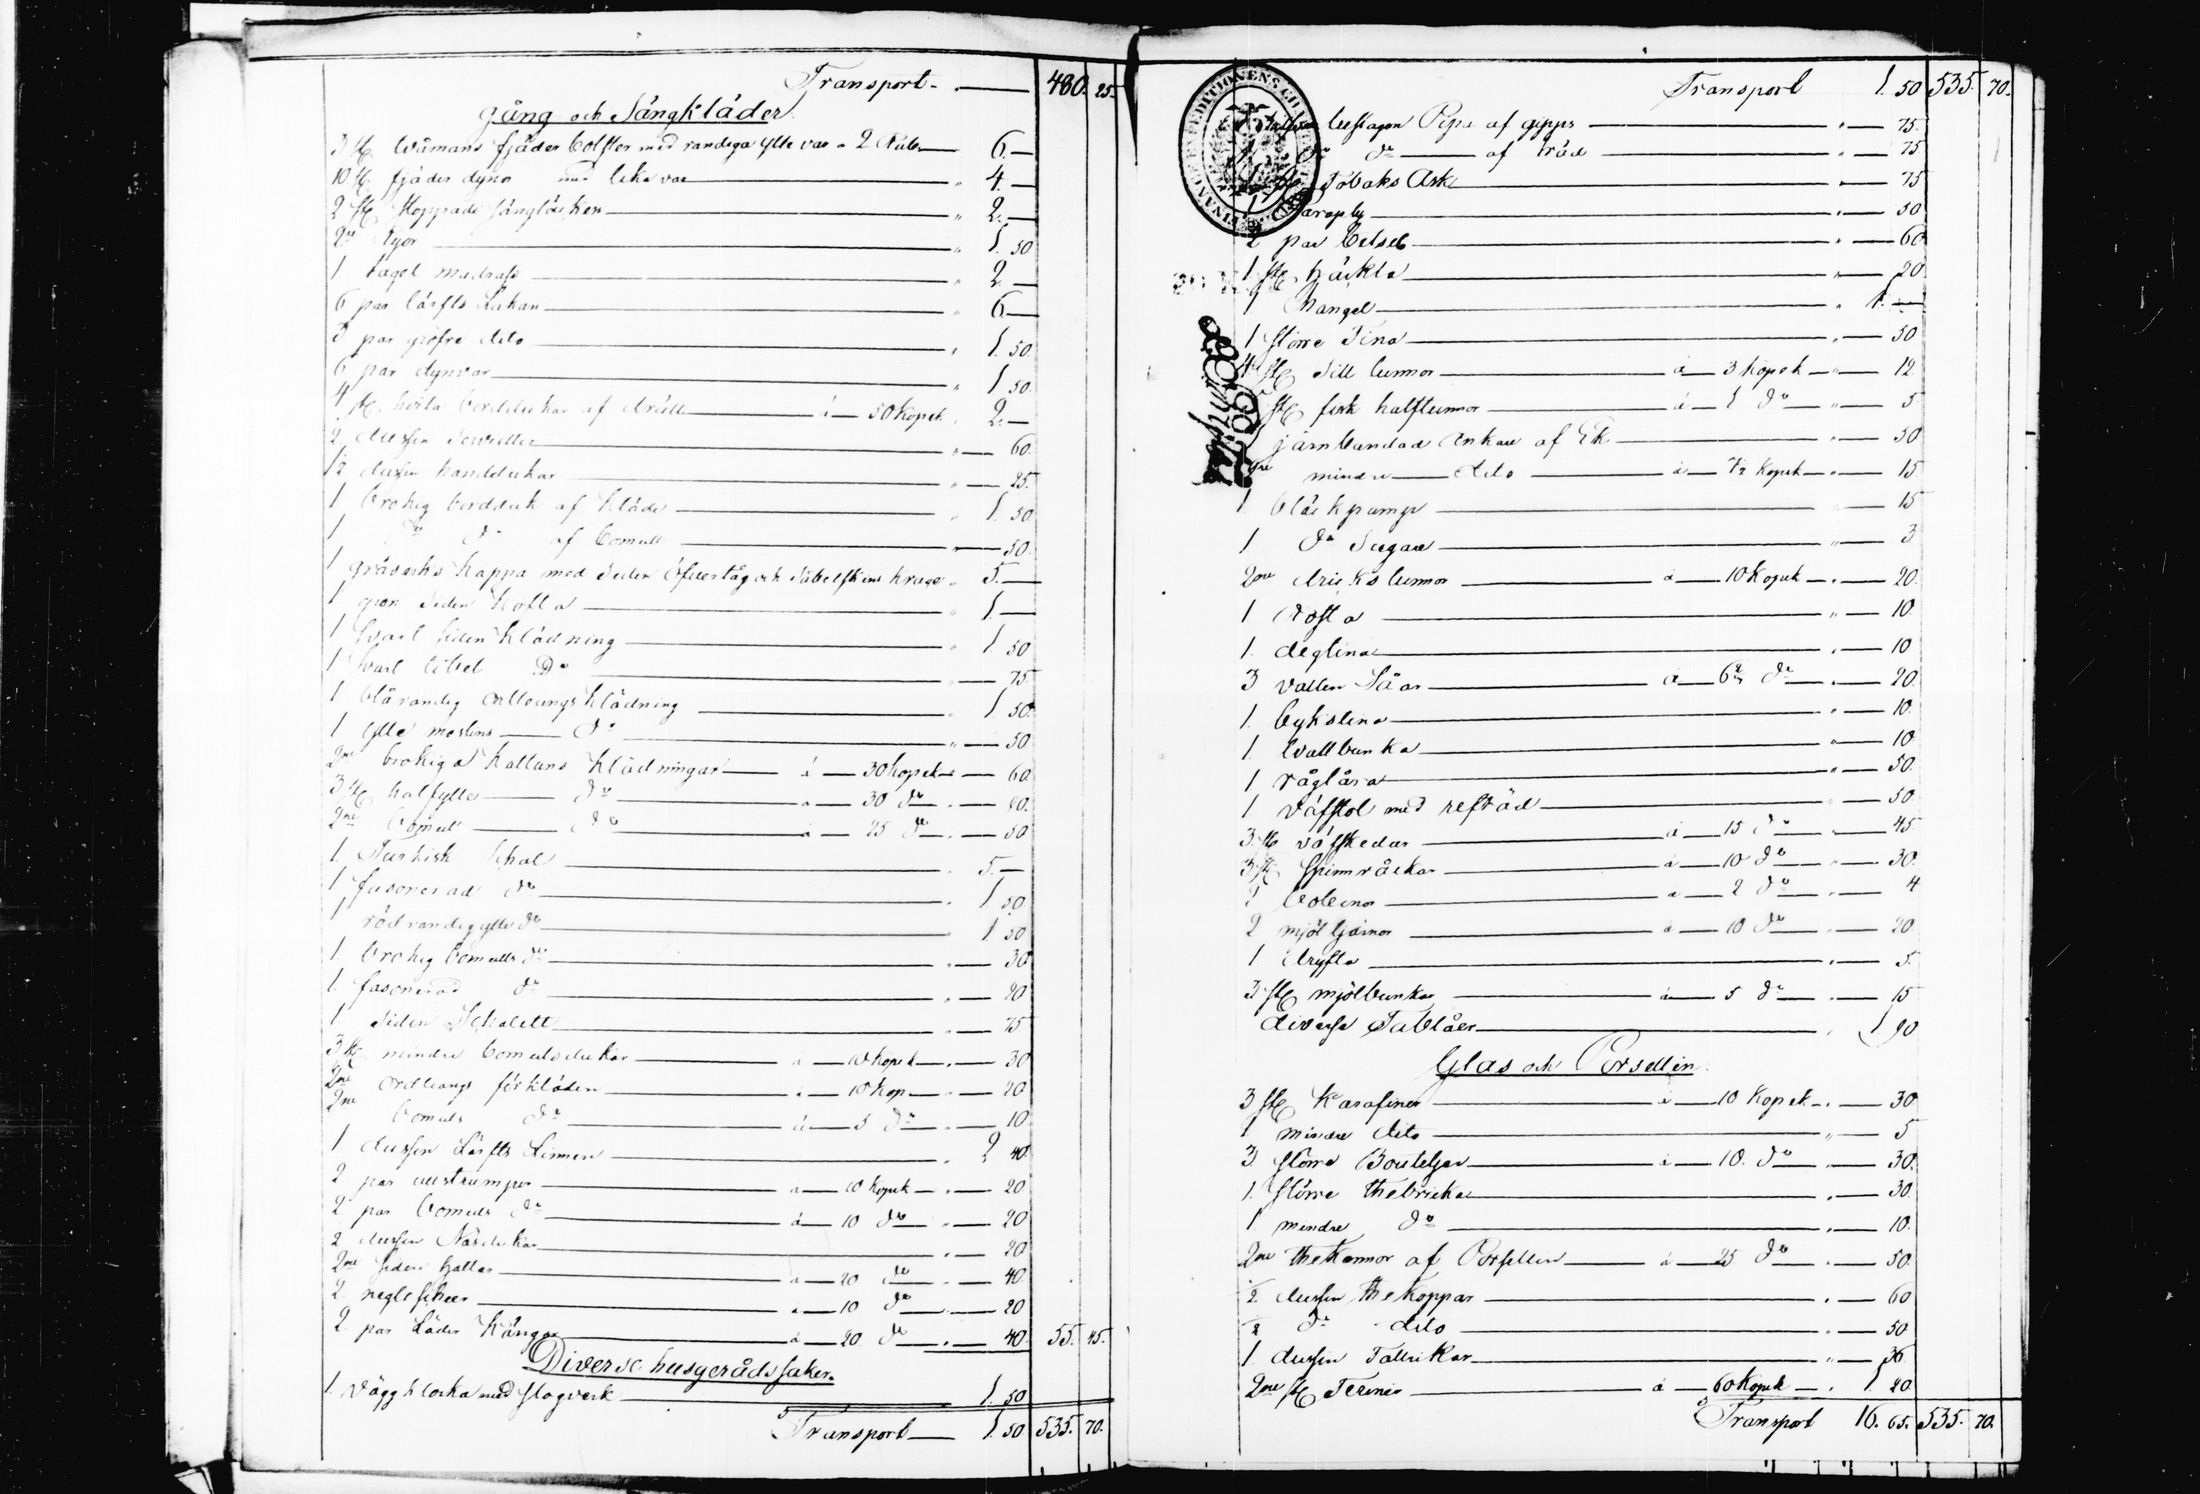 Transport 480. 25.
Gång och Sängkläder
3 st. tvåmans fjäder bolster med randiga ylle var a 2 Rub. 6.—
10 st. fjäder dynor med leka var " 4.—
2 st. stoppade sängtäcken " 2.—
2ne Ryor " 1. 50
1 tagel madrass " 2.—
6 par lärfts Lakan " 6.—
3 par gröfre dito " 1. 50.
6 par dynvar " 1 50.
4 st. hvita borddukar af dräll á 50 Kopek " 2.—
2 dussin servetter " 60.
1/2 dussin handdukar " 25.
1 brokig bordduk af kläde " 1. 50
1 do do af bomull " 50.
1 gråverks kappa med siden öfvertåg och sabelskins krage " 5.—
1 grön siden kofta " 1.—
1 svart siden klädning " 1 50
1 svart Do " 75.
1 blårandig klädning " 1. 50.
1 ylle moslins do " 50
2ne brokiga kattuns klädningar á 30 kopek 60.
3 st. halfylle do a 30 do " 90.
2ne bomull do á 25 do " 50
1 Turkisk schal " 5.—
1 fasonerad do " 1 50
1 röd randig ylle do " 1 50
1 brokig bomulls do " 30
1. fasonerad do " 20
1 siden Schalett " 75
3 st. mindre bomullsdukar á 10 kopek " 30
2ne förkläden a 10 kop " 20
2ne bomulls do á 5 do " 10
1 dussin Lärfts Linnen " 2 40.
2 par ullstrumpor a 10 kopek " 20
2 par bomulls do á 10 do " 20
2 dussin Näsdukar " 20
2ne siden hattar á 20 do " 40
2 neglescheer a 10 do " 20
2 par Läder kängor á 20 do " 40. 55. 45.
Diverse husgerådssaker.
1. väggklocka med slagverk 1. 50
Transport 1. 50 535. 70.
Transport 1. 50 535. 70.
Pipa af gipps " 75.
1 do do af träd " 75
1 st. Tobaks Ask " 75
1 Paraply " 50
2 par betsel " 60
1 st. häckla " 20
1 Mangel " 1.—
1 större Tina " 50
4 st. sill tunnor á 3 Kopek " 12
5 st. fisk halftunnor á 1 do " 5
1 järnbandad Ankare af Ek " 30
2ne mindre dito á 7½ Kopek " 15
1. bläckpump " 15
1 do Sugare " 3
2ne dricks tunnor á 10 Kopek " 20.
1 Rosta " 10.
1. degtina " 10
3 vatten Såar á 6⅔ do " 20
1. byktina " 10.
1. tvättbunka " 10
1 råglåra " 50.
1 väfstol med refträd " 50
3 st. väfskedar á 15 do " 45.
3 st. Spinnråckar á 10 do " 30.
2 bobinor a 2 do " 4
2 mjöl tjänor á 10 do " 20
1 dryfta " 5
3 st. mjölbunkar á 5 do " 15
diverse Tablåer " 1 90
Glas och Porsellin.
3 st. Karafiner á 10 Kopek " 30
1 mindre dito " 5
3 större Bouteljer á 10. do " 30.
1. större thebricka " 30
1 mindre do " 10.
2ne thekannor af Porsellin á 25 do " 50
½ dussin thekoppar " 60
½ do dito " 50
1. dussin Tallrikar " 36
2ne st. Teriner á 60 Kopek " 1. 20
Transport 16. 65. 535. 70.